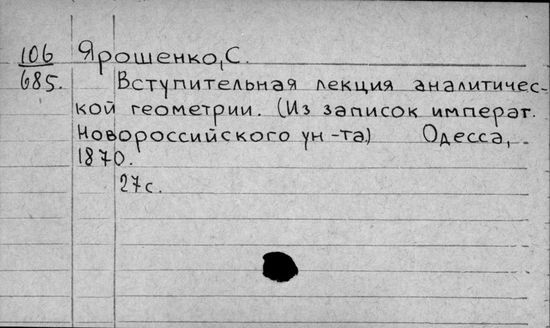 106 Ярошенко, С.
685. Вступительная лекция аналитичес-
кой геометрии. (Из записок императ.
Новороссийского ун-та) Одесса,
1870.
27с.